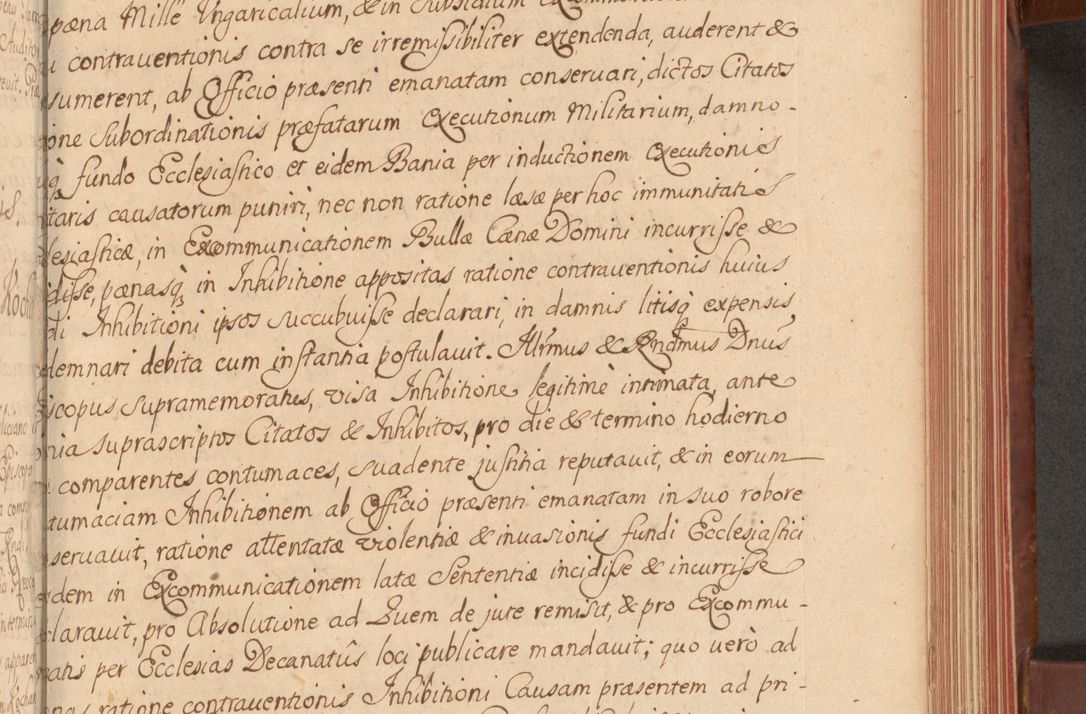 pæna Mille Ungaricalium, & in subsidium
contrauentionis contra se irremissibiliter extendenda, auderent &
sumerent, ab Officio præsenti emanatam conseruari, dictos Citatos
one Subordinationis præfatarum Executionum Militarium, damno-
fundo Ecclesiastico et eidem Bania per inductionem executionis
itaris causatorum puniri, nec non ratione læsæ per hoc immunitatis
lesiasticæ, in Excommunicationem Bullæ Cænæ Domini incurrisse &
idisse, pænasq́ in Inhibitione appositas ratione contrauentionis huius
di Inhibitioni ipsos succubuisse declarari, in damnis litisq́ expensis
demnari debita cum instantia postulauit. Illrmus & Rndmus Dnus
iscopus supramemoratus, visa Inhibitione legitime intimata, ante
nia suprascriptos Citatos & Inhibitos, pro die & termino hodierno
comparentes contumaces, suadente justitia reputauit, & in eorum
tumaciam Inhibitionem ab Officio præsenti emanatam in suo robore
seruauit, ratione attentatæ violentiæ & inuasionis fundi Ecclesiastici
dem in Excommunicationem latæ Sententiæ incidisse & incurrisse
larauit, pro Absolutione ad Quem de jure remisit, & pro Excommu-
catis per Ecclesias Decanatûs loci publicare mandauit; quo verò ad
nas ratione contrauentionis Inhibitioni Causam præsentem ad pri-